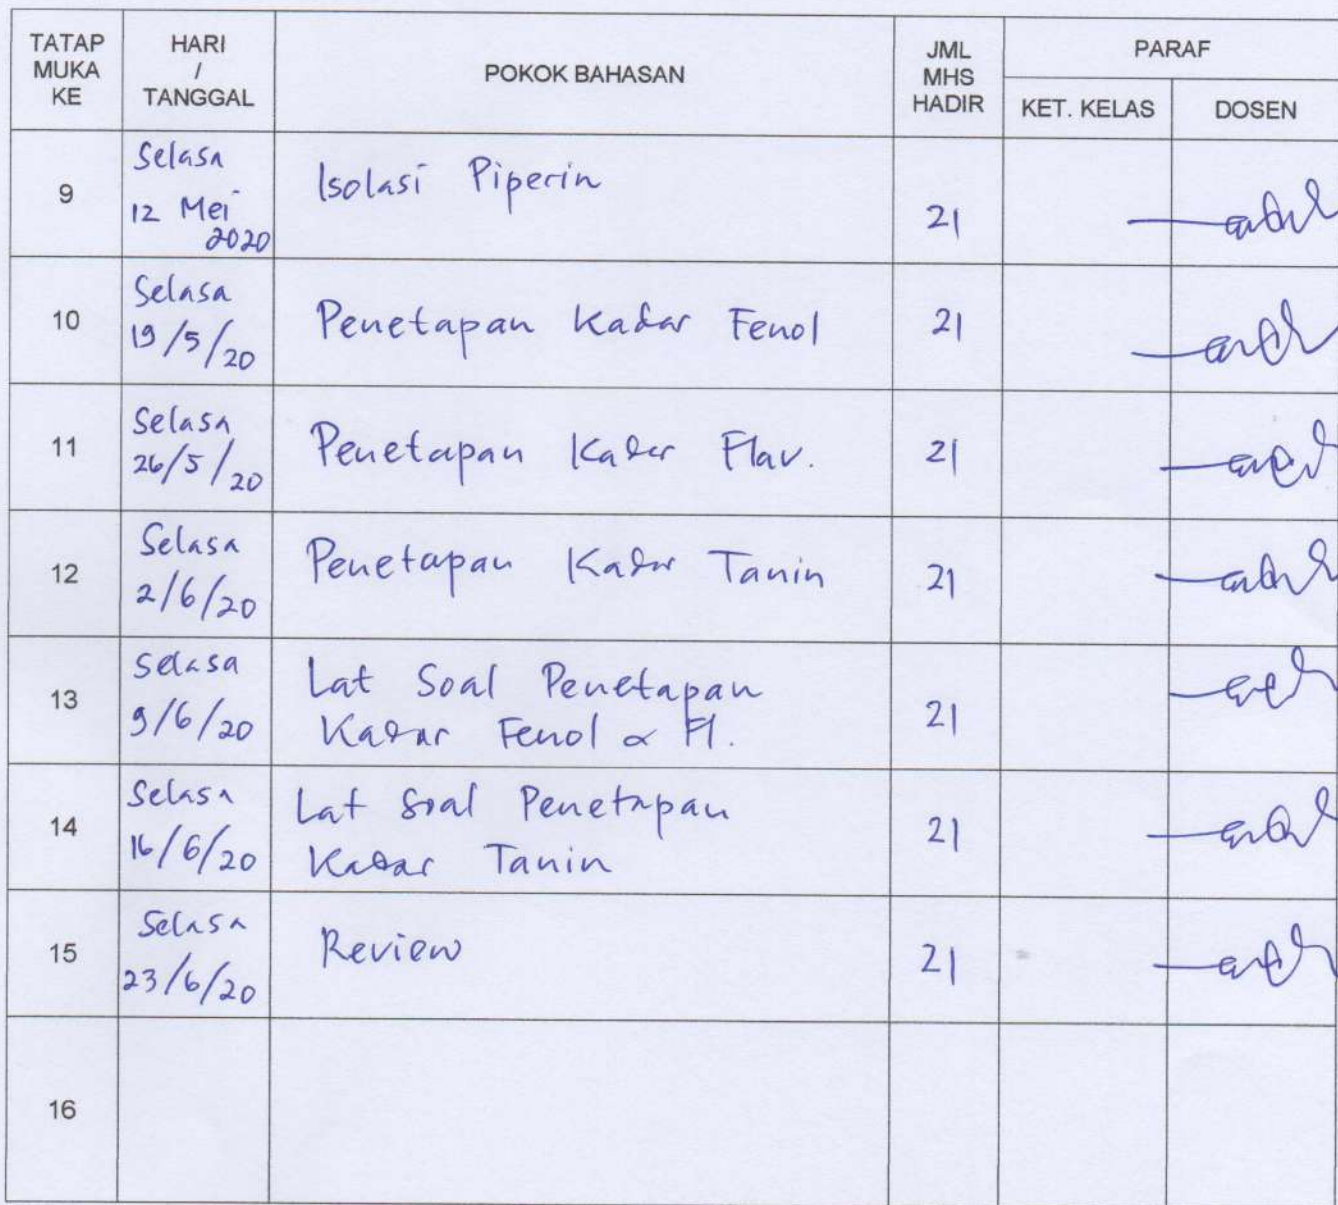 TATAP MUKA KE HARI / TANGGAL POKOK BAHASAN JML MHS HADIR PARAF
KET. KELAS DOSEN
9 Selasa 12 Mei 2020 Isolasi Piperin 21
10 Selasa 19/5/20 Penetapan Kadar Fenol 21
11 Selasa 26/5/20 Penetapan Kadar Flav. 21
12 Selasa 2/6/20 Penetapan Kadar Tanin 21
13 Selasa 9/6/20 Lat Soal Penetapan Kadar Fenol & Fl. 21
14 Selasa 16/6/20 Lat Soal Penetapan Kadar Tanin 21
15 Selasa 23/6/20 Review 21
16